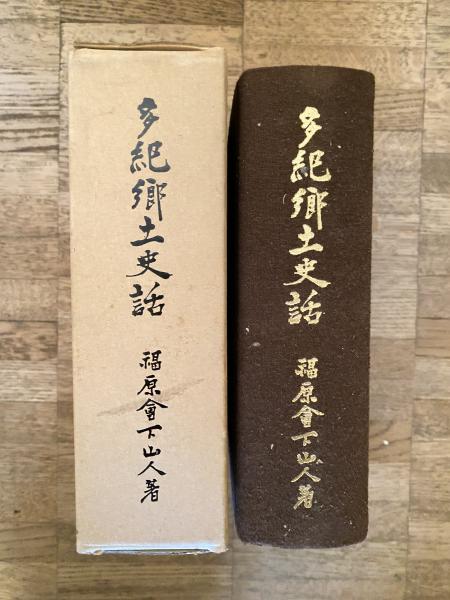 多紀郷土史話
福原會下山人著
多紀郷土史話
福原會下山人著